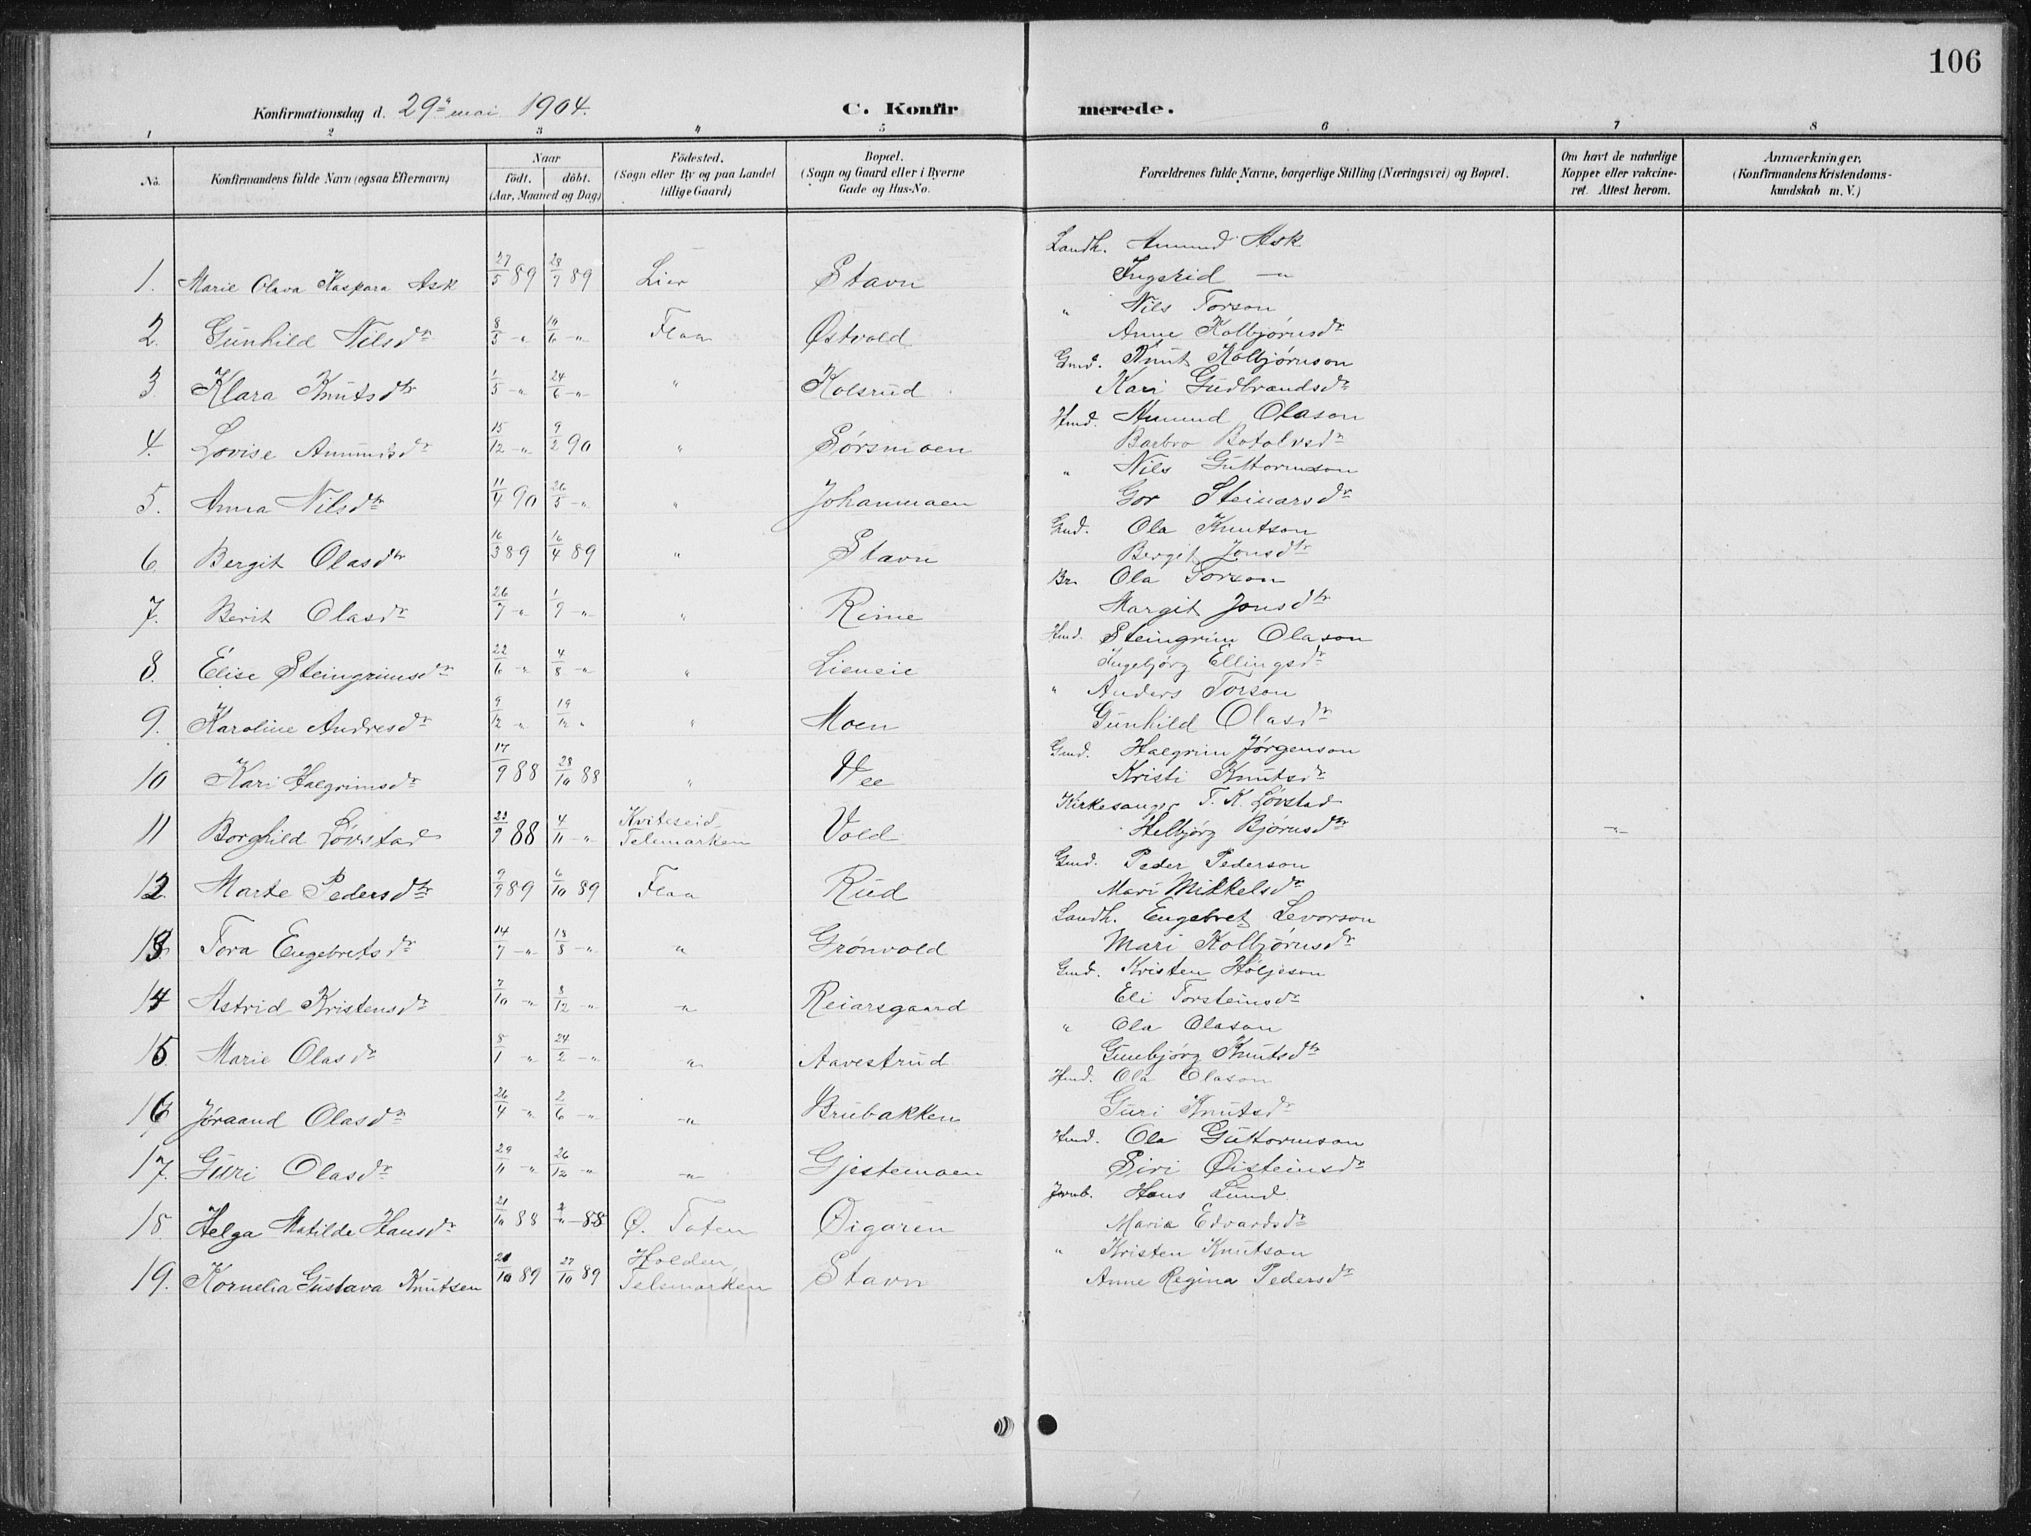 106
Konfirmationsdag d. 29de mai 1904. C. Konfir merede.
1 2 3 4 5 6 7 8
No. Konfirmandens fulde Navn (ogsaa Efternavn) Naar födt. döbt. (Aar, Maaned og Dag) Födested. (Sogn eller By og paa Landet tillige Gaard) Bopæl. (Sogn og Gaard eller i Byerne Gade og Hus-No. Forældrenes fulde Navne, borgerlige Stilling (Næringsvei) og Bopæl. Om havt de naturlige Kopper eller vakcineret. Attest herom. Anmærkninger. (Konfirmandens Kristendomskundskab m. V.)
1. Marie Olava Kaspara Ask 27/5 89 28/7 89 Lier Stavn Landh. Amund Ask
Ingerid —"—
2. Gunhild Nilsdtr 8/5 -"- 10/6 -"- Flaa Østvold " Nils Torson
Anne Kolbjørnsdtr
3. Klara Knutsdtr 1/5 -"- 24/6 -"- " Kolsrud Gmd. Knut Kolbjørnson
Kari Gudbrandsdtr
4. Lovise Amundsdtr 15/12 -"- 9/2 90 " Sørsmoen Hmd. Amund Olason
Barbro Botolvsdtr
5. Anna Nilsdtr 11/4 90 26/5 -"- " Johanmoen " Nils Guttormson
Gor Steinarsdtr
6. Bergit Olasdtr 16/3 89 16/4 89 " Stavn Gmd. Ola Knutson
Bergit Jonsdtr
7. Berit Olasdtr 26/7 -"- 1/9 -"- " Rime Br. Ola Torson
Margit Jonsdtr
8. Elise Steingrimsdtr 22/6 -"- 4/8 -"- " Lieneie Hmd. Steingrim Olason
Ingebjørg Ellingsdtr
9. Karoline Andresdtr 9/12 -"- 19/12 " " Moen " Anders Torson
Gunhild Olasdtr
10 Kari Halgrimsdtr 17/9 88 28/10 88 " Vee Gmd. Halgrim Jørgenson
Kristi Knutsdtr
11 Borghild Løvstad 23/9 88 4/11 -"- Kviteseid Telemarken Vold Kirkesanger T. K. Løvstad
Helbjørg Bjørnsdtr -"-
12. Marte Pedersdtr 9/9 89 6/10 89 Flaa Rud Gmd. Peder Pederson
Mari Mikkelsdtr
13. Tora Engebretsdtr 14/7 -"- 18/8 -"- " Grønvold Landh. Engebret Levorson
Mari Kolbjørnsdtr
14 Astrid Kristensdtr 7/10 -"- 8/12 -"- -"- Reiarsgaard Gmd. Kristen Høljeson
Eli Torsteinsdtr
15. Marie Olasdtr 8/1 -"- 24/2 -"- " Aavestrud " Ola Olason
Gunbjørg Knutsdtr
16 Jøraand Olasdtr 26/4 -"- 2/6 -"- -"- Brubakken Hmd. Ola Olason
Guri Knutsdtr
17. Guri Olasdtr 29/11 -"- 26/12 -"- -"- Gjestemoen Hmd. Ola Guttormson
Siri Øisteinsdtr
18 Helga Matilde Hansdtr 21/10 88 88 Ø. Toten Øigaren Jernb. Hans Lund
Maria Edvardsdtr
19. Kornelia Gustava Knutsen 89 27/10 89 Holden, Telemarken Stavn " Kristen Knutson
Anne Regina Pedersdtr